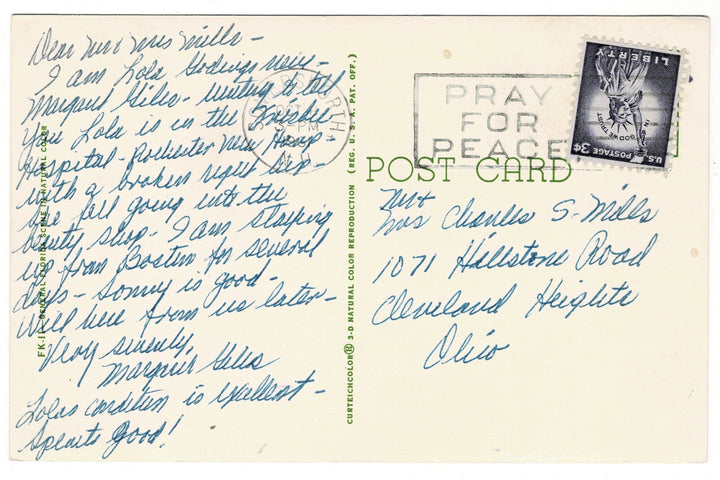 Dear Mr & Mrs Mills -
I am Lola Godings niece -
Margaret Giles - writing to tell
you Lola is in the Frisbie
Hospital - Rochester New Hamp -
with a broken right hip -
she fell going into the
beauty shop - I am staying
up from Boston for several
days - Sonny is good -
Will hear from us later -
Very sincerely,
Margaret Giles
Lolas condition is excellent -
Spirits Good!
FK-11- GENERAL FLORIDA SCENE IN NATURAL COLOR
CURTEICHCOLOR® 3-D NATURAL COLOR REPRODUCTION (REG. U. S. A. PAT. OFF.)
SOMERSWORTH
OCT
PM
PRAY
FOR
PEACE
LIBERTY
IN GOD WE TRUST
U.S. POSTAGE 3¢
POST CARD
Mr &
Mrs Charles S. Mills
1071 Hallstone Road
Cleveland Heights
Ohio